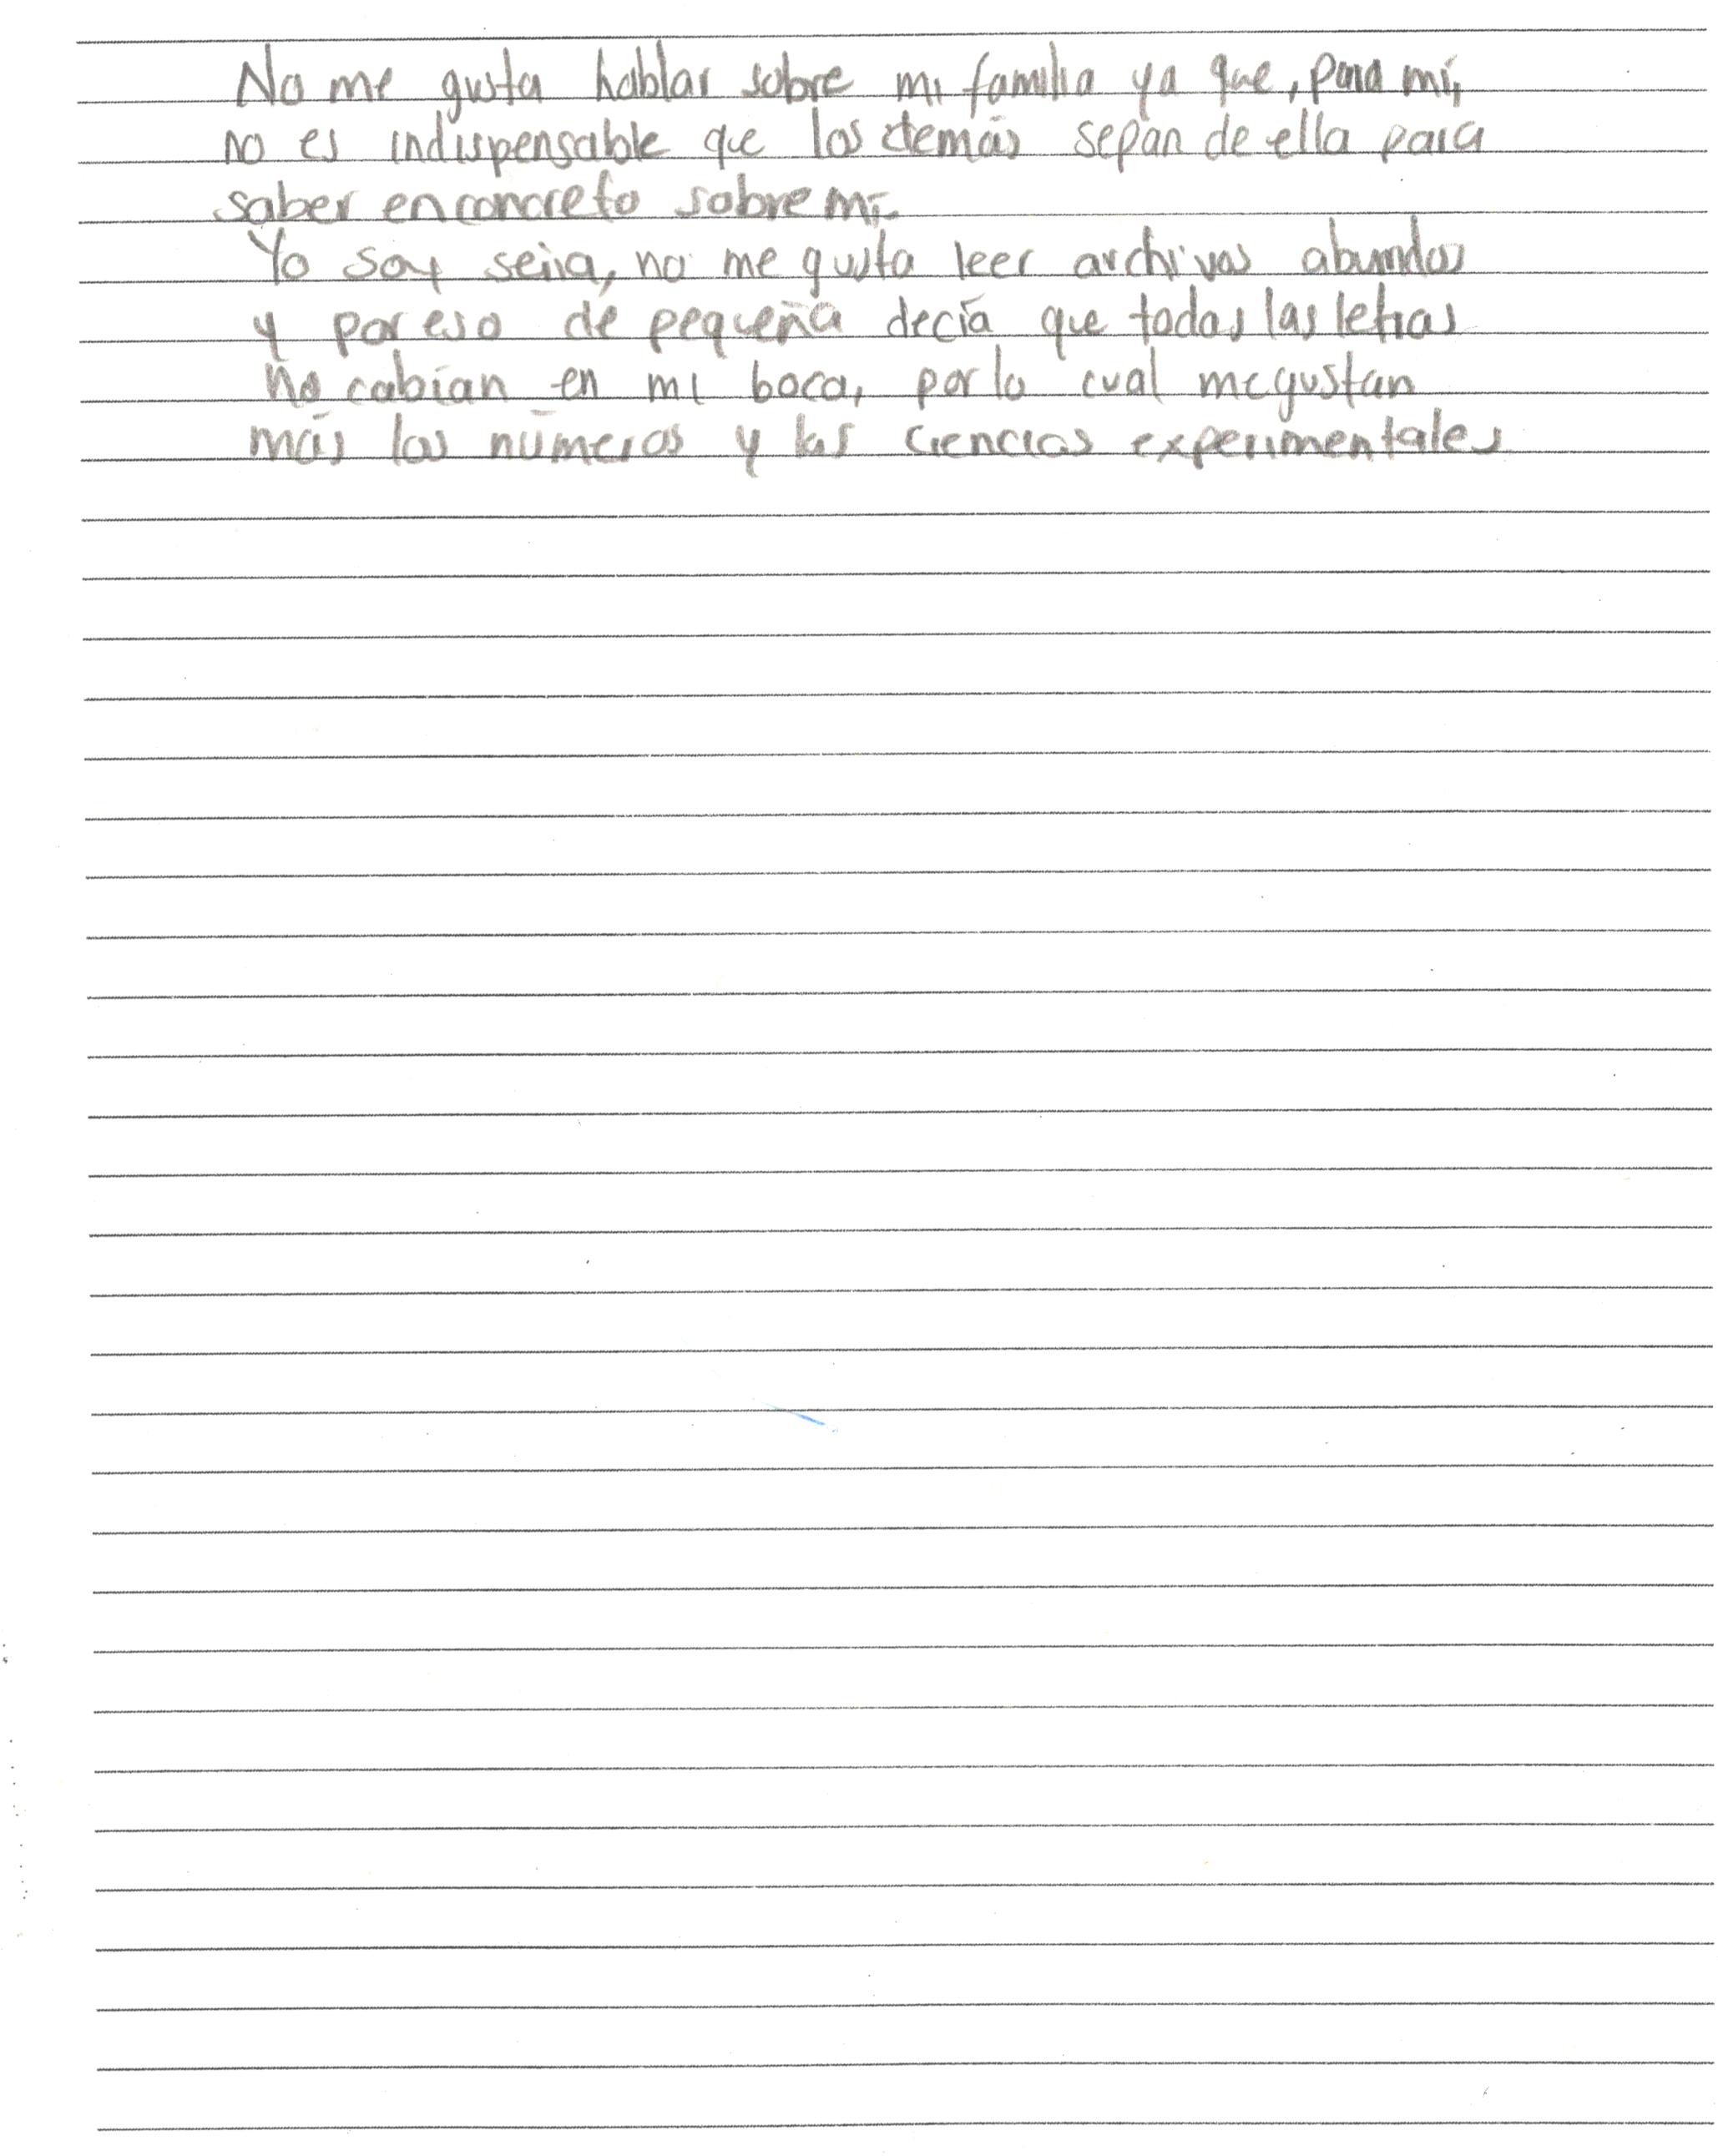 No me gusta hablar sobre mi familia ya que, para mí,
no es indispensable que los demás sepan de ella para
saber en concreto sobre mí.
Yo soy seria, no me gusta leer archivos aburridos
y por eso de pequeña decía que todas las letras
no cabían en mi boca, por lo cual me gustan
más los números y las ciencias experimentales